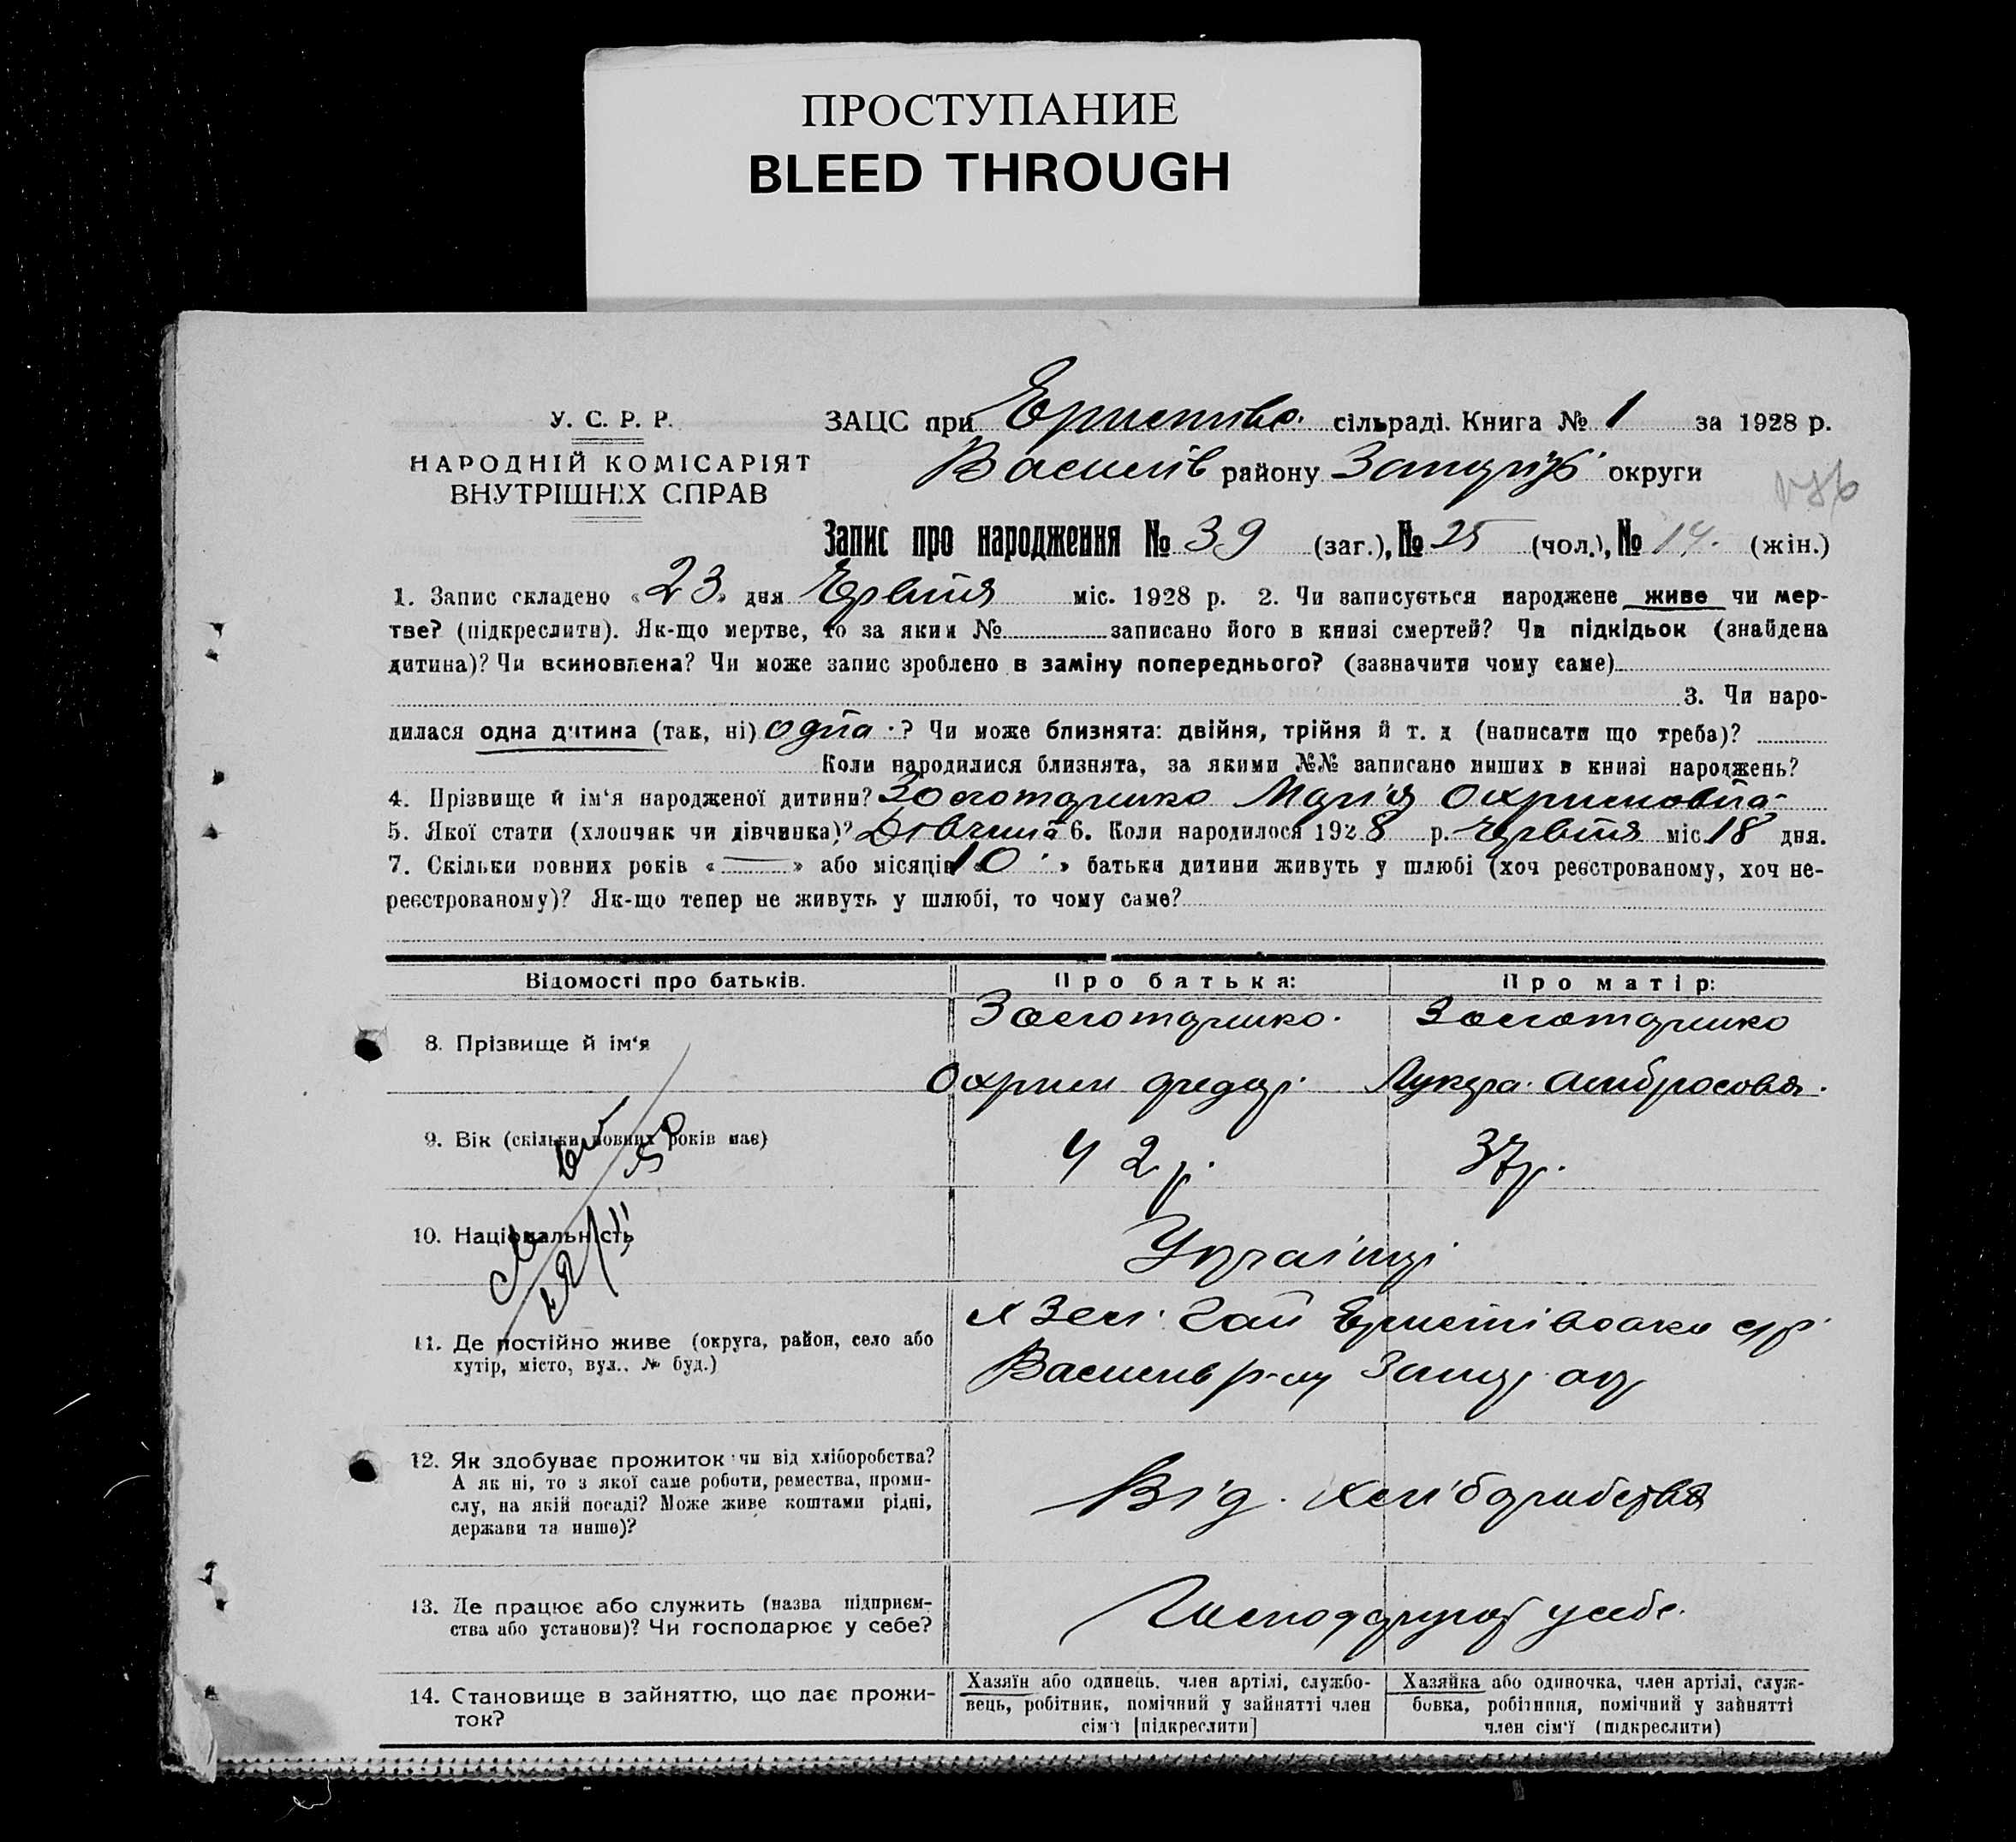 ПРОСТУПАНИЕ
BLEED THROUGH
У. С. Р. Р.
НАРОДНІЙ КОМІСАРІЯТ
ВНУТРІШНІХ СПРАВ
ЗАЦС при сільраді. Книга № 1 за 1928 р.
Василів району Запоріз. округи
Запис про народження № 39 (заг.), № 25 (чол.), № 14. (жін.)
1. Запис складено «23» дня Червня міс. 1928 р. 2. Чи записується народжене живе чи мер-
тве? (підкреслити). Як-що мертве, то за яким № записано його в книзі смертей? Чи підкідьок (знайдена
дитина)? Чи всиновлена? Чи може запис зроблено в заміну попереднього? (зазначити чому саме)
3. Чи наро-
дилася одна дитина (так, ні) одна ? Чи може близнята: двійня, трійня й т. д (написати що треба)?
Коли народилися близнята, за якими №№ записано инших в книзі народжень?
4. Прізвище й ім‘я народженої дитини? Золотаренко Марія Охримовна
5. Якої статі (хлопчик чи дівчинка)? Дівчина 6. Коли народилося 1928 р. червня міс. 18 дня.
7. Скільки повних років « — » або місяців «10» батьки дитини живуть у шлюбі (хоч реєстрованому, хоч не-
реєстрованому)? Як-що тепер не живуть у шлюбі, то чому саме?
Відомості про батьків. Про батька: Про матір:
8. Прізвище й ім‘я
Золотаренко. Золотаренко
Охрим Федор. Лукера Амбросовна.
9. Вік (скільки повних років має) 42 р. 37 р.
10. Національність Українці
11. Де постійно живе (округа, район, село або
хутір, місто, вул., № буд.)
х Зел. Гай с/р
Василів р-ну Запор. ок
12. Як здобуває прожиток чи від хліборобства?
А як ні, то з якої саме роботи, ремества, проми-
слу, на якій посаді? Може живе коштами рідні,
держави та инше)?
Від. хліборобства
13. Де працює або служить (назва підприєм-
ства або установи)? Чи господарює у себе?
Господарюют у себе.
14. Становище в зайняттю, що дає прожи-
ток?
Хазяїн або одинець, член артілі, службо-
вець, робітник, помічний у зайнятті член
сім‘ї [підкреслити]
Хазяйка або одиночка, член артілі, служ-
бовка, робітниця, помічний у зайнятті
член сім‘ї (підкреслити)